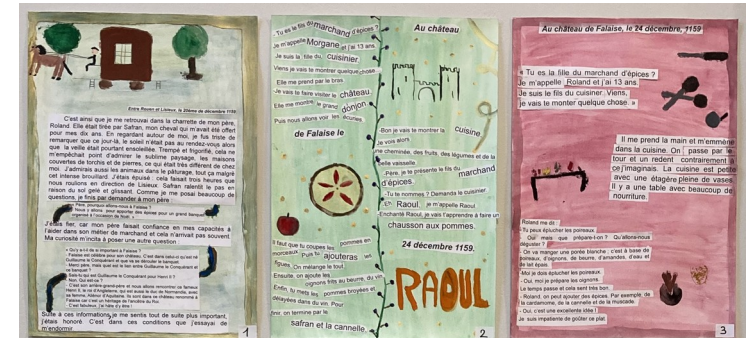 Entre Rouen et Lisieux, le 20ème de décembre 1159
C'est ainsi que je me retrouvai dans la charrette de mon père,
Roland. Elle était tirée par Safran, mon cheval qui m'avait été offert
pour mes dix ans. En regardant autour de moi, je fus triste de
remarquer que ce jour-là, le soleil n'était pas au rendez-vous alors
que la veille était pourtant ensoleillée. Trempé et frigorifié, cela ne
m'empêchait point d'admirer le sublime paysage, les maisons
couvertes de torchis et de pierres, ce qui était très différent de chez
moi. J'admirais aussi les animaux dans le pâturage, tout ça malgré
cet intense brouillard. J'étais épuisé : cela faisait trois heures que
nous roulions en direction de Lisieux. Safran ralentit le pas en
raison du sol gelé et glissant. Comme je me posai beaucoup de
questions, je finis par demander à mon père :
- Père, pourquoi allons-nous à Falaise ?
- Nous y allons pour apporter des épices pour un grand banquet
organisé à l'occasion de Noël.
J'étais fier, car mon père faisait confiance en mes capacités à
l'aider dans son métier de marchand et cela n'arrivait pas souvent.
Ma curiosité m'incita à poser une autre question :
- Qu'y a-t-il de si important à Falaise ?
- Falaise est célèbre pour son château. C'est dans celui-ci qu'est né
Guillaume le Conquérant et que va se dérouler le banquet.
- Merci père, mais quel est le lien entre Guillaume le Conquérant et
ce banquet ?
- Sais-tu qui est Guillaume le Conquérant pour Henri II ?
- Non. Qui est-ce ?
- C'est son arrière-grand-père et nous allons rencontrer ce fameux
Henri II, le roi d'Angleterre, qui est aussi le duc de Normandie, avec
sa femme, Aliénor d'Aquitaine. Ils sont dans ce château renommé à
Falaise car c'est un héritage de l'ancêtre du Roi.
- C'est fabuleux, j'ai hâte d'y être !
Suite à ces informations, je me sentis tout de suite plus important,
j'étais honoré. C'est dans ces conditions que j'essayai de
m'endormir.
1
- Tu es la fille du marchand d'épices ?
Je m'appelle Morgane et j'ai 13 ans.
Je suis la fille du cuisinier.
Viens je vais te montrer quelque chose.
Elle me prend par le bras.
Je vais te faire visiter le château.
Elle me montre le grand donjon.
Puis nous allons voir les écuries
de Falaise le
Au château
-Bon je vais te montrer la cuisine.
Je vois alors
une cheminée, des fruits, des légumes et de la
belle vaisselle.
-Père, je te présente le fils du marchand
d'épices.
-Tu te nommes ? Demanda le cuisinier.
-Eh Raoul, je m'appelle Raoul.
Enchanté Raoul, je vais t'apprendre à faire un
chausson aux pommes.
Il faut que tu coupes les pommes en
morceaux. Puis tu ajouteras les
fruits. On mélange le tout.
Ensuite, on ajoute les
oignons frits au beurre, du vin.
Enfin, tu mets les pommes broyées et
délayées dans du vin. Pour
finir, on termine par le
safran et la cannelle.
24 décembre 1159.
RAOUL
2
Au château de Falaise, le 24 décembre, 1159
« Tu es la fille du marchand d'épices ?
Je m'appelle Roland et j'ai 13 ans.
Je suis le fils du cuisinier. Viens,
je vais te montrer quelque chose. »
Il me prend la main et m'emmène
dans la cuisine. On passe par le
tour et un redent contrairement à
ce j'imaginais. La cuisine est petite
avec une étagère pleine de vases.
Il y a une table avec beaucoup de
nourriture.
Roland me dit :
-Tu peux éplucher les poireaux.
- Oui mais que prépare-t-on ? Qu'allons-nous
déguster ?
- On va manger une porée blanche ; c'est à base de
poireaux, d'oignons, de beurre, d'amandes, d'eau et
de lait épais.
-Moi je dois éplucher les poireaux.
- Oui, moi je prépare les oignons.
Le temps passe et cela sent très bon.
- Roland, on peut ajouter des épices. Par exemple, de
la cardamome, de la cannelle et de la muscade.
- Oui, c'est une excellente idée !
Je suis impatiente de goûter ce plat.
3